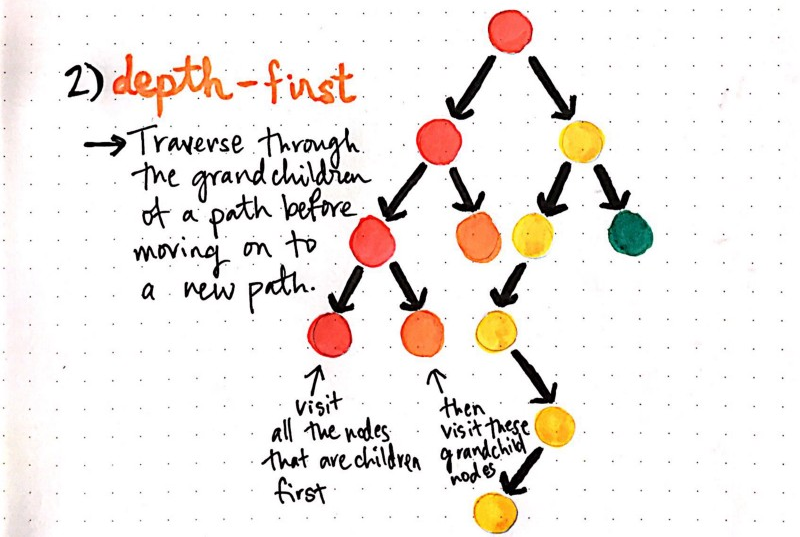 2) depth-first
→ Traverse through
the grandchildren
of a path before
moving on to
a new path.
visit
all the nodes
that are children
first
then
visit these
grandchild
nodes